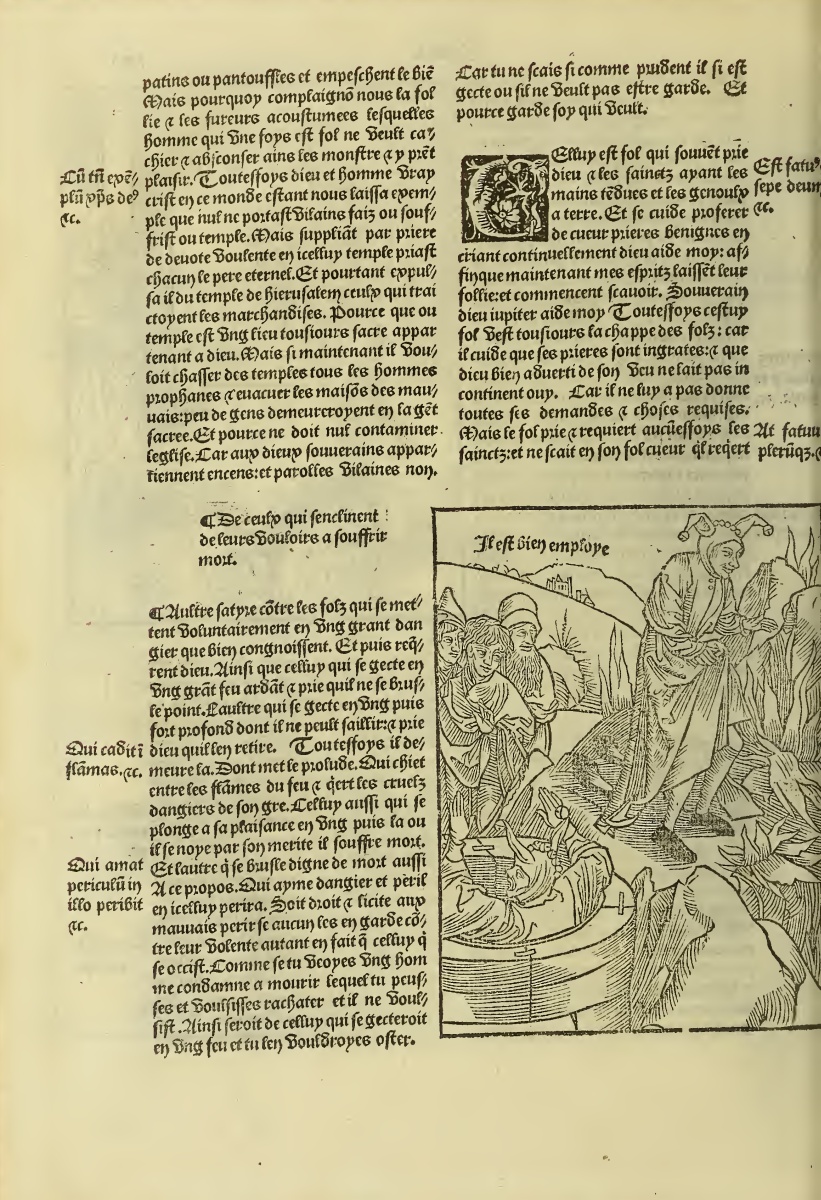 patins ou pantouffles et empeschent le biē
Mais pourquoy complaignō nous la fol
lie ⁊ les fureurs acoustumees lesquelles
homme qui vne foys est fol ne veult ca/
chier ⁊ absconser ains les monstre ⁊ y prēt
plaisir. Toutesfoys dieu et homme vray
crist en ce monde estant nous laissa exem/
ple que nul ne portast vilains faiz ou souf/
frist ou temple. Mais suppliāt par priere
de deuote voulente en icelluy temple priast
chacun le pere eternel. Et pourtant expul/
sa il du temple de hierusalem ceulx qui trai
ctoyent les marchandises. Pource que ou
temple est vng lieu tousiours sacre appar
tenant a dieu. Mais si maintenant il vou/
loit chasser des temples tous les hommes
prophanes ⁊ euacuer les maisōs des mau/
uais: peu de gens demeureroyent en la gēt
sacree. Et pource ne doit nul contaminer
leglise. Car aux dieux souuerains appar/
tiennent encens: et parolles vilaines non.
Cū tn̄ exēm/
plū xp̄s de⁹
⁊c.
¶ De ceulx qui senclinent
de leurs vouloirs a souffrir
mort.
¶ Aultre satyre cōtre les folz qui se met/
tent voluntairement en vng grant dan
gier que bien congnoissent. Et puis req̄/
rent dieu. Ainsi que celluy qui se gecte en
vng grāt feu ardāt ⁊ prie quil ne se brus/
le point. Laultre qui se gecte en vng puis
fort profond dont il ne peult saillir: ⁊ prie
dieu quil len retire. Toutesfoys il de/
meure la. Dont met le prolude. Qui chiet
entre les flāmes du feu ⁊ q̄rt les cruelz
dangiers de son gre. Celluy aussi qui se
plonge a sa plaisance en vng puis la ou
il se noye par son merite il souffre mort.
Et lautre q̄ se brusle digne de mort aussi
A ce propos. Qui ayme dangier et peril
en icelluy perira. Soit droit ⁊ licite aux
mauuais perir se aucun les en garde cō/
tre leur volente autant en fait q̄ celluy q̄
se occist. Comme se tu veoyes vng hom
me condamne a mourir lequel tu peus/
ses et voulsisses rachater et il ne voul/
sist. Ainsi seroit de celluy qui se gecteroit
en vng feu et tu len vouldroyes oster.
Qui cadit ī
flāmas. ⁊c.
Qui amat
periculū in
illo peribit
⁊c.
Car tu ne scais si comme prudent il si est
gecte ou sil ne veult pas estre garde. Et
pource garde soy qui veult.
Celluy est fol qui souuēt prie
dieu ⁊ les sainctz ayant les
mains tēdues et les genoulx
a terre. Et se cuide proferer
de cueur prieres benignes en
criant continuellement dieu aide moy: af/
fin que maintenant mes espritz laissēt leur
follie: et commencent scauoir. Souuerain
dieu iupiter aide moy Toutesfoys cestuy
fol vest tousiours la chappe des folz: car
il cuide que ses prieres sont ingrates: ⁊ que
dieu bien aduerti de son veu ne lait pas in
continent ouy. Car il ne luy a pas donne
toutes ses demandes ⁊ choses requises.
Mais le fol prie ⁊ requiert aucūesfoys les
sainctz: et ne scait en son fol cueur q̄l req̄ert
Est fatu⁹
sepe deum
⁊c.
At fatuu
plerūqꝫ.
Il est bien employe